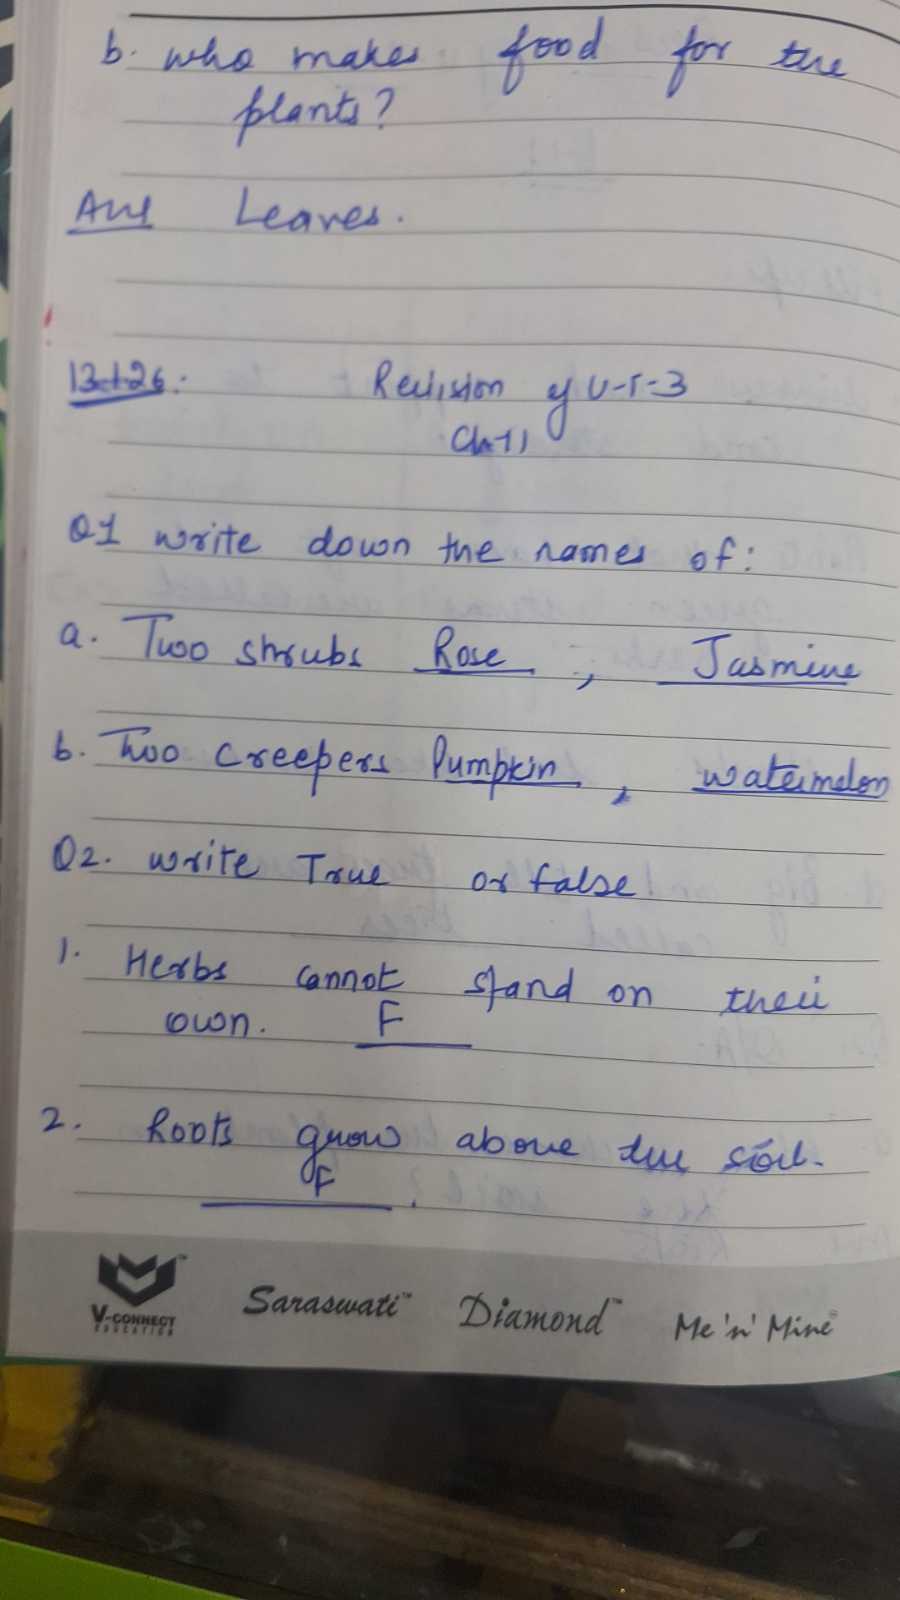 b. who makes food for the
plants?
Ans Leaves.
13-1-26.
Revision of U-T-3
Ch-11
Q1 write down the names of:
a. Two shrubs Rose , Jasmine
b. Two creepers Pumpkin , watermelon
Q2. write True or false
1. Herbs cannot stand on their
own. F
2. Roots grow above the soil.
F
V-CONNECT
EDUCATION
Saraswati™ Diamond™ Me 'n' Mine®